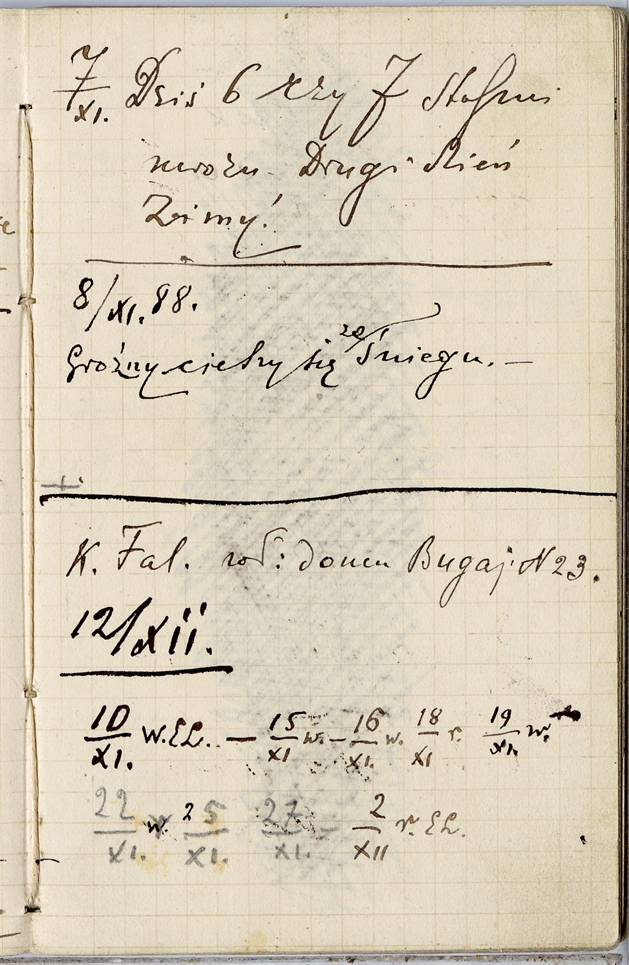 7/XI. Dziś 6 czy 7 stopni
mrozu. Drugi dzień
Zimy!
8/XI. 88.
Groźny cichy się ze śniegu. —
K. Fal. rod: domu Bugaj N 23.
12/XII.
10/XI. W. EL. — 15/XI w. — 16/XI. w. 18/XI r. 19/XI. w.
22/XI. w. 25/XI. 27/XI. — 2/XII r. EL.